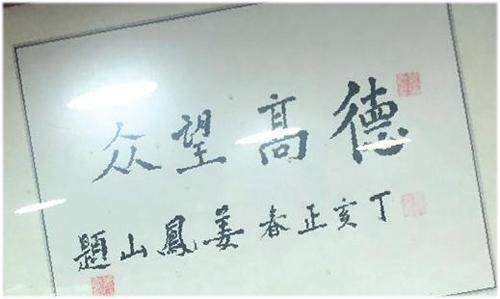 德高望众
丁亥正春姜鳳山題